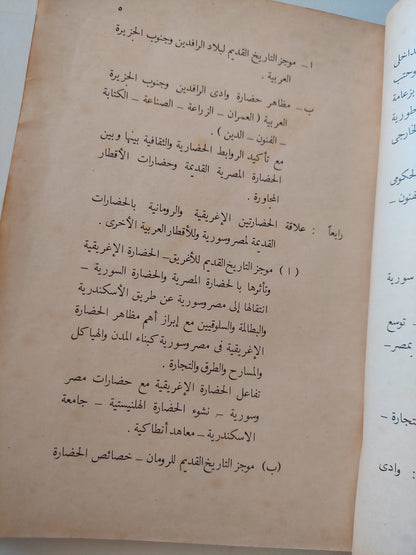 ٥
ا — موجز التاريخ القديم لبلاد الرافدين وجنوب الجزيرة
العربية .
ب — مظاهر حضارة وادى الرافدين وجنوب الجزيرة
العربية ( العمران — الزراعة — الصناعة — الكتابة
— الفنون — الدين ) .
مع تأكيد الروابط الحضارية والثقافية بينها وبين
الحضارة المصرية القديمة وحضارات الأقطار
المجاورة .
رابعاً : علاقة الحضارتين الإغريقية والرومانية بالحضارات
القديمة لمصر وسورية وللأقطار العربية الأخرى .
( ا ) موجز التاريخ القديم للأغريق — الحضارة الإغريقية
وتأثرها بالحضارة المصرية والحضارة السورية —
انتقالها إلى مصر وسورية عن طريق الأسكندرية
والبطالمة والسلوقيين مع إبراز أهم مظاهر الحضارة
الإغريقية فى مصر وسورية كبناء المدن والهياكل
والمسارح والطرق والتجارة .
تفاعل الحضارة الإغريقية مع حضارات مصر
وسورية — نشوء الحضارة الهلنيستية — جامعة
الاسكندرية — معاهد أنطاكية .
(ب) موجز التاريخ القديم للرومان — خصائص الحضارة
بزعامة
الحكومى
سورية
— توسع
بمصر —
التجارة —
: وادى